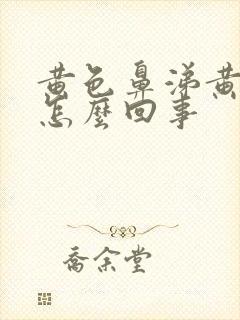 黄色鼻涕黄
怎麼回事
喬余堂